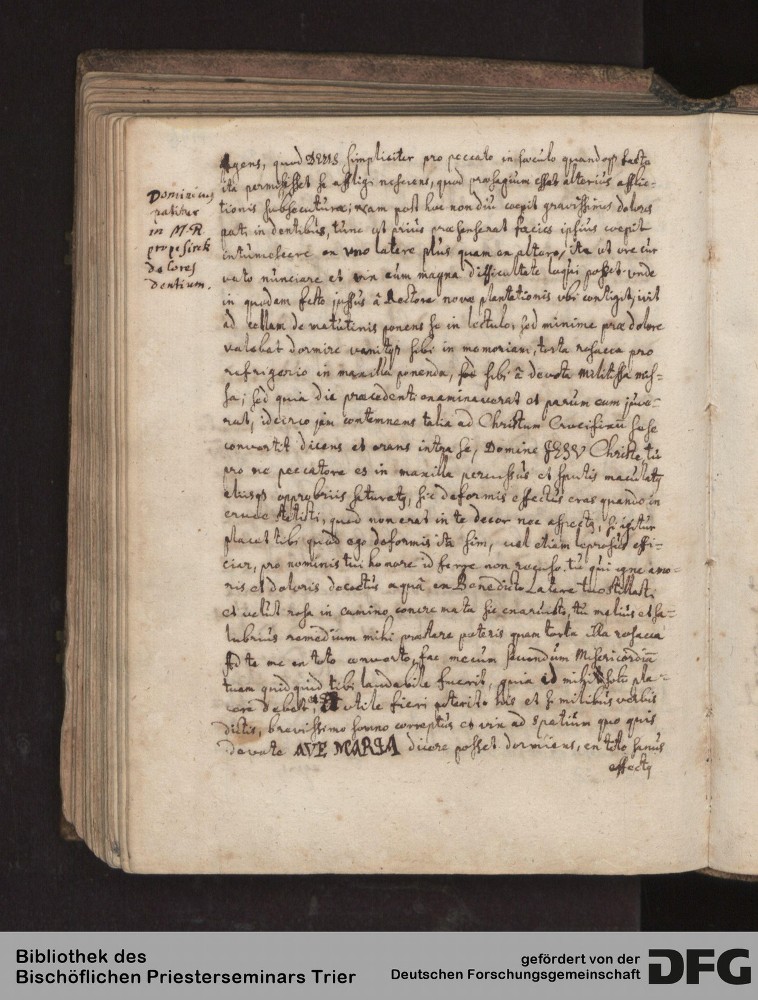 Dominicus
patitur
in M. R.
dolores
dentium.
Agens, quod DEUS simpliciter pro peccato in sæculo quandoqȝ facto
ita permisisset se affligi nesciens, quod præsagium esset alterius afflic-
tionis subsecuturæ; nam post hoc non diu coepit gravissimos dolores
pati in dentibus, tunc ut prius præsenserat facies ipsius coepit
intumescere ex uno latere plus quam ex altero, ita ut
nunciare et vix cum magna difficultate loqui posset. unde
in quodam festo jussus â Rectore novæ plantationis ubi contigit, ivit
ad cellam de matutinis ponens se in lectulo, sed minime præ dolore
valebat dormire venitqȝ sibi in memoriam, torta rosacea pro
refrigerio in maxilla ponenda, sibi â devota Militissa mis-
sa; sed quia die præcedenti examinaverat et parum eum juve-
rat, idcirco jam contemnens talia ad Christum Crucifixũ sese
convertit dicens et orans intra se, Domine JESU Christe, tu
pro me peccatore es in maxilla percussus et sputis maculatȝ
opprobriis saturatȝ, sic deformis effectus eras quando in
cruce stetisti, quod non erat in te decor nec aspectȝ, si igitur
placet tibi quod ego deformis ita sim, vel etiam leprosus effi-
ciar, pro nominis tui honore id ferre non recuso. tu qui igne amo-
ris et doloris decoctus aquã ex Benedicto Latere tuo stillasti,
et velut rosa in camino concremata sic exaruisti, tu melius et sa-
lubrius remedium mihi præstare poteris quam torta illa rosacea
Ad te me ex toto converto, fac mecum secundum Misericordiã
tuam quidquid tibi laudabile fuerit, quia id mihi solũ pla-
cere debet, et utile fieri poterit. his et similibus verbis
dictis, brevissimo somno correptus et vix ad spatium quo quis
devote AVE MARIA dicere posset dormiens, ex toto sanus
effectȝ
Bibliothek des
Bischöflichen Priesterseminars Trier
gefördert von der
Deutschen Forschungsgemeinschaft
DFG